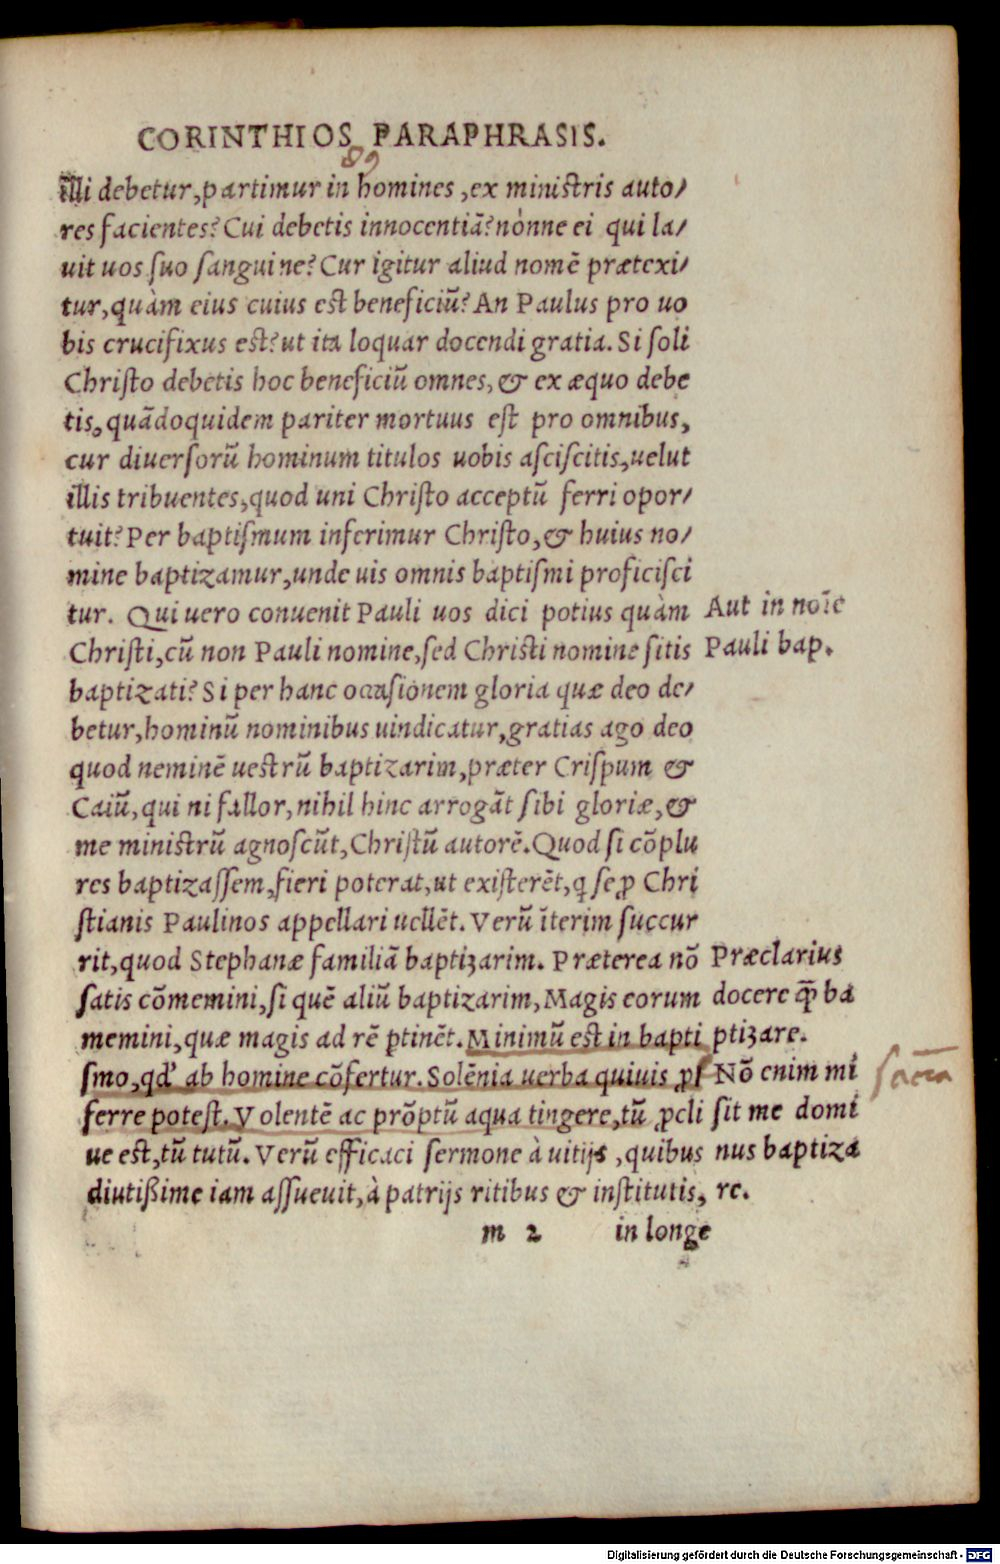 CORINTHIOS PARAPHRASIS.
89
illi debetur, partimur in homines, ex ministris auto/
res facientes? Cui debetis innocentiã? nónne ei qui la/
uit uos ſuo ſanguine? Cur igitur aliud nomē prætexi/
tur, quàm eius cuius est beneficiũ? An Paulus pro uo
bis crucifixus est? ut ita loquar docendi gratia. Si ſoli
Chriſto debetis hoc beneficiũ omnes, & ex æquo debe
tis, quãdoquidem pariter mortuus est pro omnibus,
cur diuerſorũ hominum titulos uobis aſciſcitis, uelut
illis tribuentes, quod uni Chriſto acceptũ ferri opor/
tuit? Per baptiſmum inſerimur Chriſto, & huius no/
mine baptizamur, unde uis omnis baptiſmi proficiſci
tur. Qui uero conuenit Pauli uos dici potius quàm
Chriſti, cũ non Pauli nomine, ſed Chriſti nomine ſitis
baptizati? Si per hanc occaſionem gloria quæ deo de/
betur, hominũ nominibus uindicatur, gratias ago deo
quod neminē ueſtrũ baptizarim, præter Criſpum &
Caiũ, qui ni fallor, nihil hinc arrogãt ſibi gloriæ, &
me miniſtrũ agnoſcũt, Chriſtũ autorē. Quod ſi cõplu
res baptizaſſem, fieri poterat, ut exiſterēt, ꝗ ſe ꝓ Chri
ſtianis Paulinos appellari uellēt. Verũ ĩterim ſuccur
rit, quod Stephanæ familiã baptizarim. Præterea nõ
ſatis cõmemini, ſi quē aliũ baptizarim, Magis eorum
memini, quæ magis ad rē ꝑtinēt. Minimũ est in bapti
ſmo, qd' ab homine cõfertur. Solēnia uerba quiuis ꝓſ
ferre poteſt. Volentē ac prõptũ aqua tingere, tũ ꝓcli
ue est, tũ tutũ. Verũ efficaci ſermone à uitijs, quibus
diutißime iam aſſueuit, à patrijs ritibus & inſtitutis,
m 2 in longe
Aut in noĩe
Pauli bap.
Præclarius
docere q̃ ba
ptizare.
Nõ enim mi
ſit me domi
nus baptiza
re.